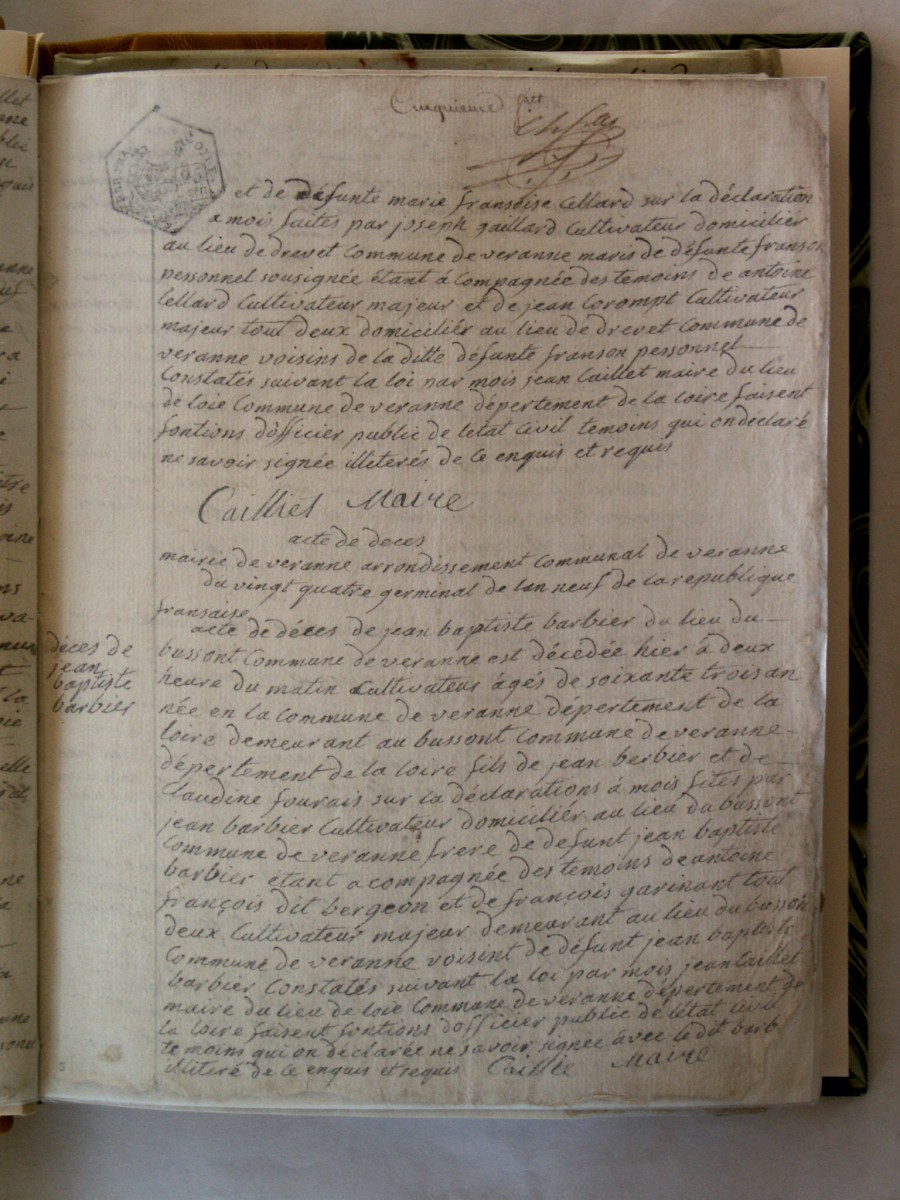 Cinquieme
et de défunte marie fransoise Cellard sur la déclaration
a mois faites par joseph gaillard Cultivateur domicilier
au lieu de drevet Commune de veranne marie de défunte franson
personnel sousignée étant à Compagnée des temoins de antoine
Cellard Cultivateur majeur et de jean Corompt Cultivateur
majeur tout deux domiciliér au lieu de drevet Commune de
veranne voisins de la ditte défante franson personnel
Constatés suivant la loi par mois jean Caillet maire du lieu
de loie Commune de veranne dépertement de la loire faisent
fontions dofficier public de létat Civil temoins qui on déclaré
ne savoir signée illiterés de Ce enquis et requis
Cailliet Maire
acte de deces
mairie de veranne arrondissement Communal de veranne
du vingt quatre germinal de lan neuf de la republique
fransaise
acte de déces de jean baptiste barbier du lieu du
déces de
jean
baptiste
barbier
bussont Commune de veranne est décédée hier à deux
heure du matin Cultivateur ágés de soixante trois an
née en la Commune de veranne dépertement de la
loire demeurant au bussont Commune de veranne
dépertement de la loire fils de jean berbier et de
Claudine fourais sur la déclarations à mois fites par
jean barbier Cultivateur domiciliér au lieu du bussont
Commune de veranne frere de defunt jean baptiste
barbier etant acompagnée des temoins de antoine
françois dit bergeon et de françois garinant tout
deux Cultivateur majeur demeurant au lieu du busson
Commune de veranne voisint de défunt jean baptiste
barbier Constatés suivant la loi par mois jean Caillet
maire du lieu de loie Commune de veranne dépertement de
la loire faisent fontions dofficier public de létat Civil
temoins qui on déclarée ne savoir signée avec le dit barb
illiteré de Ce enquis et requis Caillie Maire